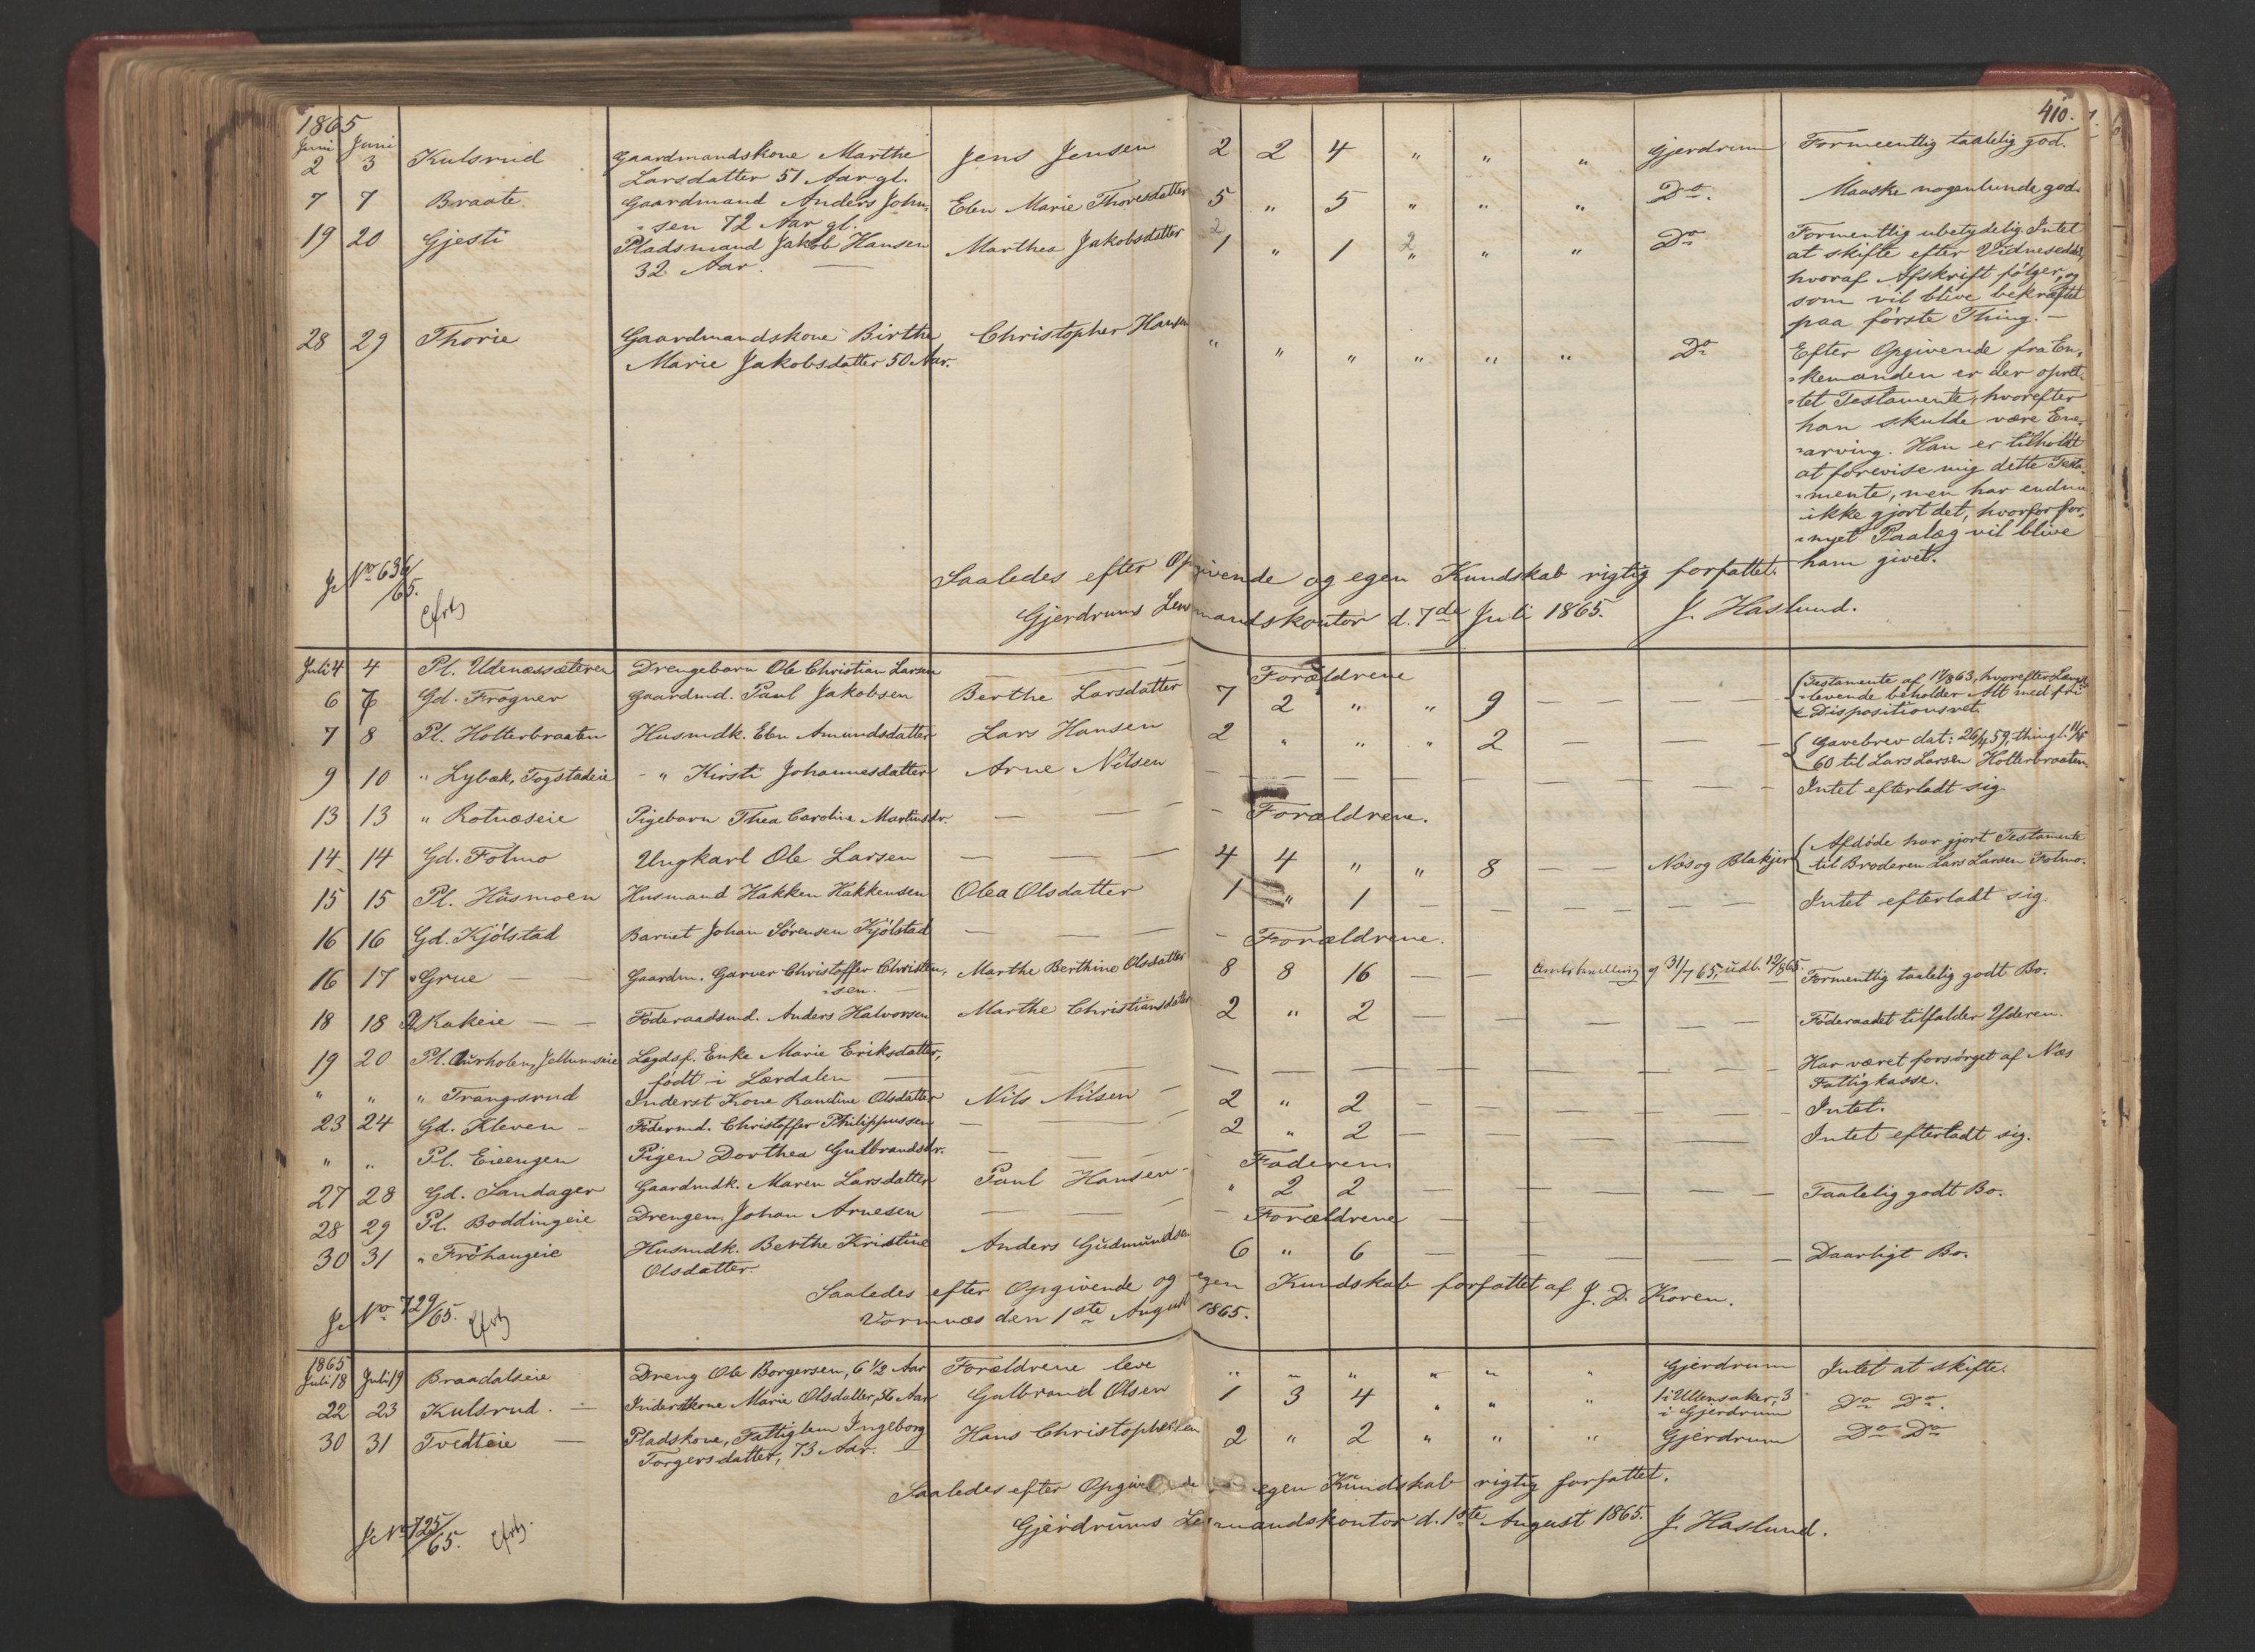 410.
1865
Juni Juni
2 3 Kulsrud Gaardmandskone Marthe Jens Jensen 2 2 4 " " " Gjerdrum Formeentlig taalelig god.
Larsdatter 51 Aar gl.
7 7 Braate Gaardmand Anders John- Elen Marie Thoresdatter 5 " 5 " " " Do. Maaske nogenlunde god.
sen 72 Aar gl.
19 20 Gjesti Pladsmand Jakob Hansen Marthea Jakobsdatter 2 1 " 1 2 " " " Do Formentlig ubetydelig. Intet
32 Aar. at skifte efter Vidneseddel,
hvoraf Afskrift følger, og
som vil blive bekræftet
paa første Thing. —
28 29 Thorie Gaardmandskone Birthe Christopher Hansen " " " " " " Do Efter Opgivende fra En-
Marie Jakobsdatter 50 Aar. kemanden er der opret-
tet Testamente, hvorefter
han skulde være Ene-
arving. Han er tilholdt
at forevise mig dette Testa-
mente, men har endnu
ikke gjort det, hvorfor for-
nyet Paalæg vil blive
ham givet.
Saaledes efter Opgivende og egen Kundskab rigtig forfattet.
Gjerdrums Lensmandskontor d. 7de Juli 1865. J. Haslund.
Jr No 636/65.
Juli 4 4 Pl. Udenæssæteren Drengebarn Ole Christian Larsen — — — Forældrene
6 6 Gd. Frogner Gaardmd. Paul Jakobsen Berthe Larsdatter 7 2 " " 9 — — — — Testamente af 17/8 63, hvorefter Længst-
levende beholder Alt med fri
Dispositionsret.
7 8 Pl. Holterbraaten Husmdk. Elen Amundsdatter Lars Hansen 2 " " " 2 — — — Gavebrev dat: 26/4 59, thingl.
60 til Lars Larsen Holterbraaten.
9 10 " Lybæk, Fogstadeie — " Kirsti Johannesdatter Arne Nilsen — — — — — — — — Intet efterladt sig.
13 13 " Rotnæseie Pigebarn Thea Caroline Martinsdr. — — — Forældrene.
14 14 Gd. Folmo Ungkarl Ole Larsen — — — 4 4 " " 8 — — Næs og Blakjer Afdøde har gjort Testamente
til Broderen Lars Larsen Folmo.
15 15 Pl. Husmoen Husmand Hakken Hakkensen Olea Olsdatter 1 " 1 — — — — — Intet efterladt sig.
16 16 Gd. Kjölstad Barnet Johan Sörensen Kjölstad — — — Forældrene.
16 17 " Grue — — Gaardm. Garver Christoffer Christen- Marthe Berthine Olsdatter 8 8 16 — — 31/7 65, udl. 12/8 65. Formentlig taalelig godt Bo.
sen. —
18 18 Pl Kakeie — — Föderaadsmd. Anders Halvorsen Marthe Christiansdatter 2 " 2 — — — — — Föderaadet tilfalder Yderen.
19 20 Pl. Aurholen, Jellumseie Lægdsf. Enke Marie Eriksdatter, — — — — — — — — — — Har været forsørget af Næs
født i Lærdalen — Fattigkasse.
" " " Trangsrud Inderst Kone Randine Olsdatter Nils Nilsen — 2 " 2 — — — — — Intet.
23 24 Gd. Kleven — Födermd. Christoffer Philippussen — — 2 " 2 — — — — Intet efterladt sig.
" " Pl. Eieengen Pigen Dorthea Gulbrandsdr. — — — Faderen.
27 28 Gd. Sandager Gaardmdk. Maren Larsdatter Paul Hansen — " 2 2 — — — — — Taalelig godt Bo.
28 29 Pl. Boddingeie Drengen Johan Arnesen — — — Forældrene —
30 31 " Fröhaugeie Husmdk. Berthe Kristine Anders Gudmundsen 6 " 6 — — — — Daarligt Bo.
Olsdatter.
Saaledes efter Opgivende og egen Kundskab forfattet af J. D. Koren.
Vormnæs den 1ste August 1865.
Jr No 729/65.
1865
Juli 18 Juli 19 Braadalseie Dreng Ole Borgersen, 6 1/2 Aar Forældrene leve " " " " " " Gjerdrum Intet at skifte.
22 23 Kulsrud. — Inderstkone Marie Olsdatter, 36 Aar Gulbrand Olsen 1 3 4 " " " 1 i Ullensaker, 3 Do Do.
i Gjerdrum
30 31 Tvedteie — Pladskone, Fattiglem Ingeborg Hans Christophersen 2 " 2 " " " Gjerdrum Do Do
Torgersdatter, 73 Aar. —
Saaledes efter Opgivende egen Kundskab rigtig forfattet.
Gjerdrums Lensmandskontor d. 1ste August 1865. J. Haslund.
Jr No 725/65.